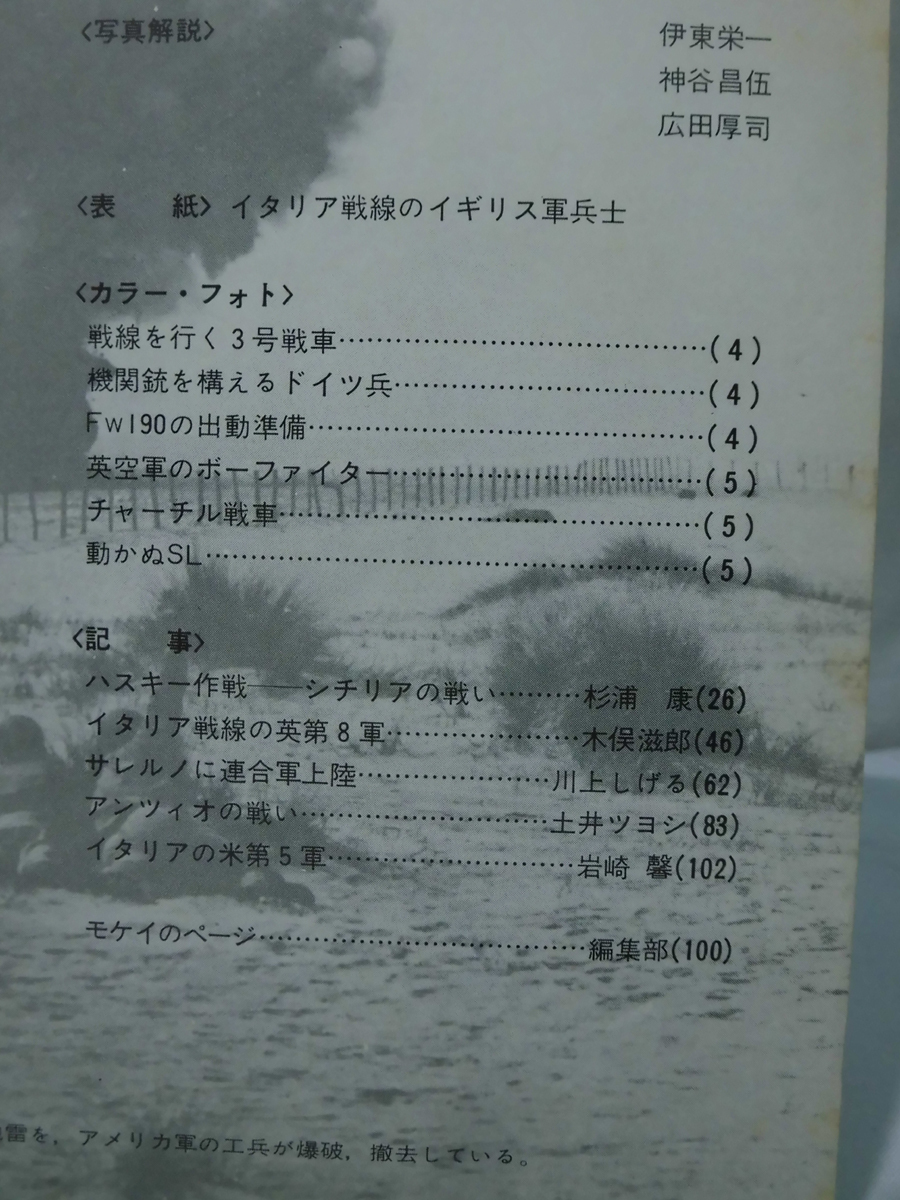 〈写真解説〉 伊東栄一
神谷昌伍
広田厚司
〈表　紙〉 イタリア戦線のイギリス軍兵士
〈カラー・フォト〉
戦線を行く３号戦車……………………………………(4)
機関銃を構えるドイツ兵………………………………(4)
Fw190の出動準備………………………………………(4)
英空軍のボーファイター………………………………(5)
チャーチル戦車…………………………………………(5)
動かぬSL…………………………………………………(5)
〈記　事〉
ハスキー作戦――シチリアの戦い………杉浦　康(26)
イタリア戦線の英第８軍…………………木俣滋郎(46)
サレルノに連合軍上陸…………………川上しげる(62)
アンツィオの戦い………………………土井ツヨシ(83)
イタリアの米第５軍………………………岩崎 馨(102)
モケイのページ………………………………編集部(100)
雷を，アメリカ軍の工兵が爆破，撤去している。